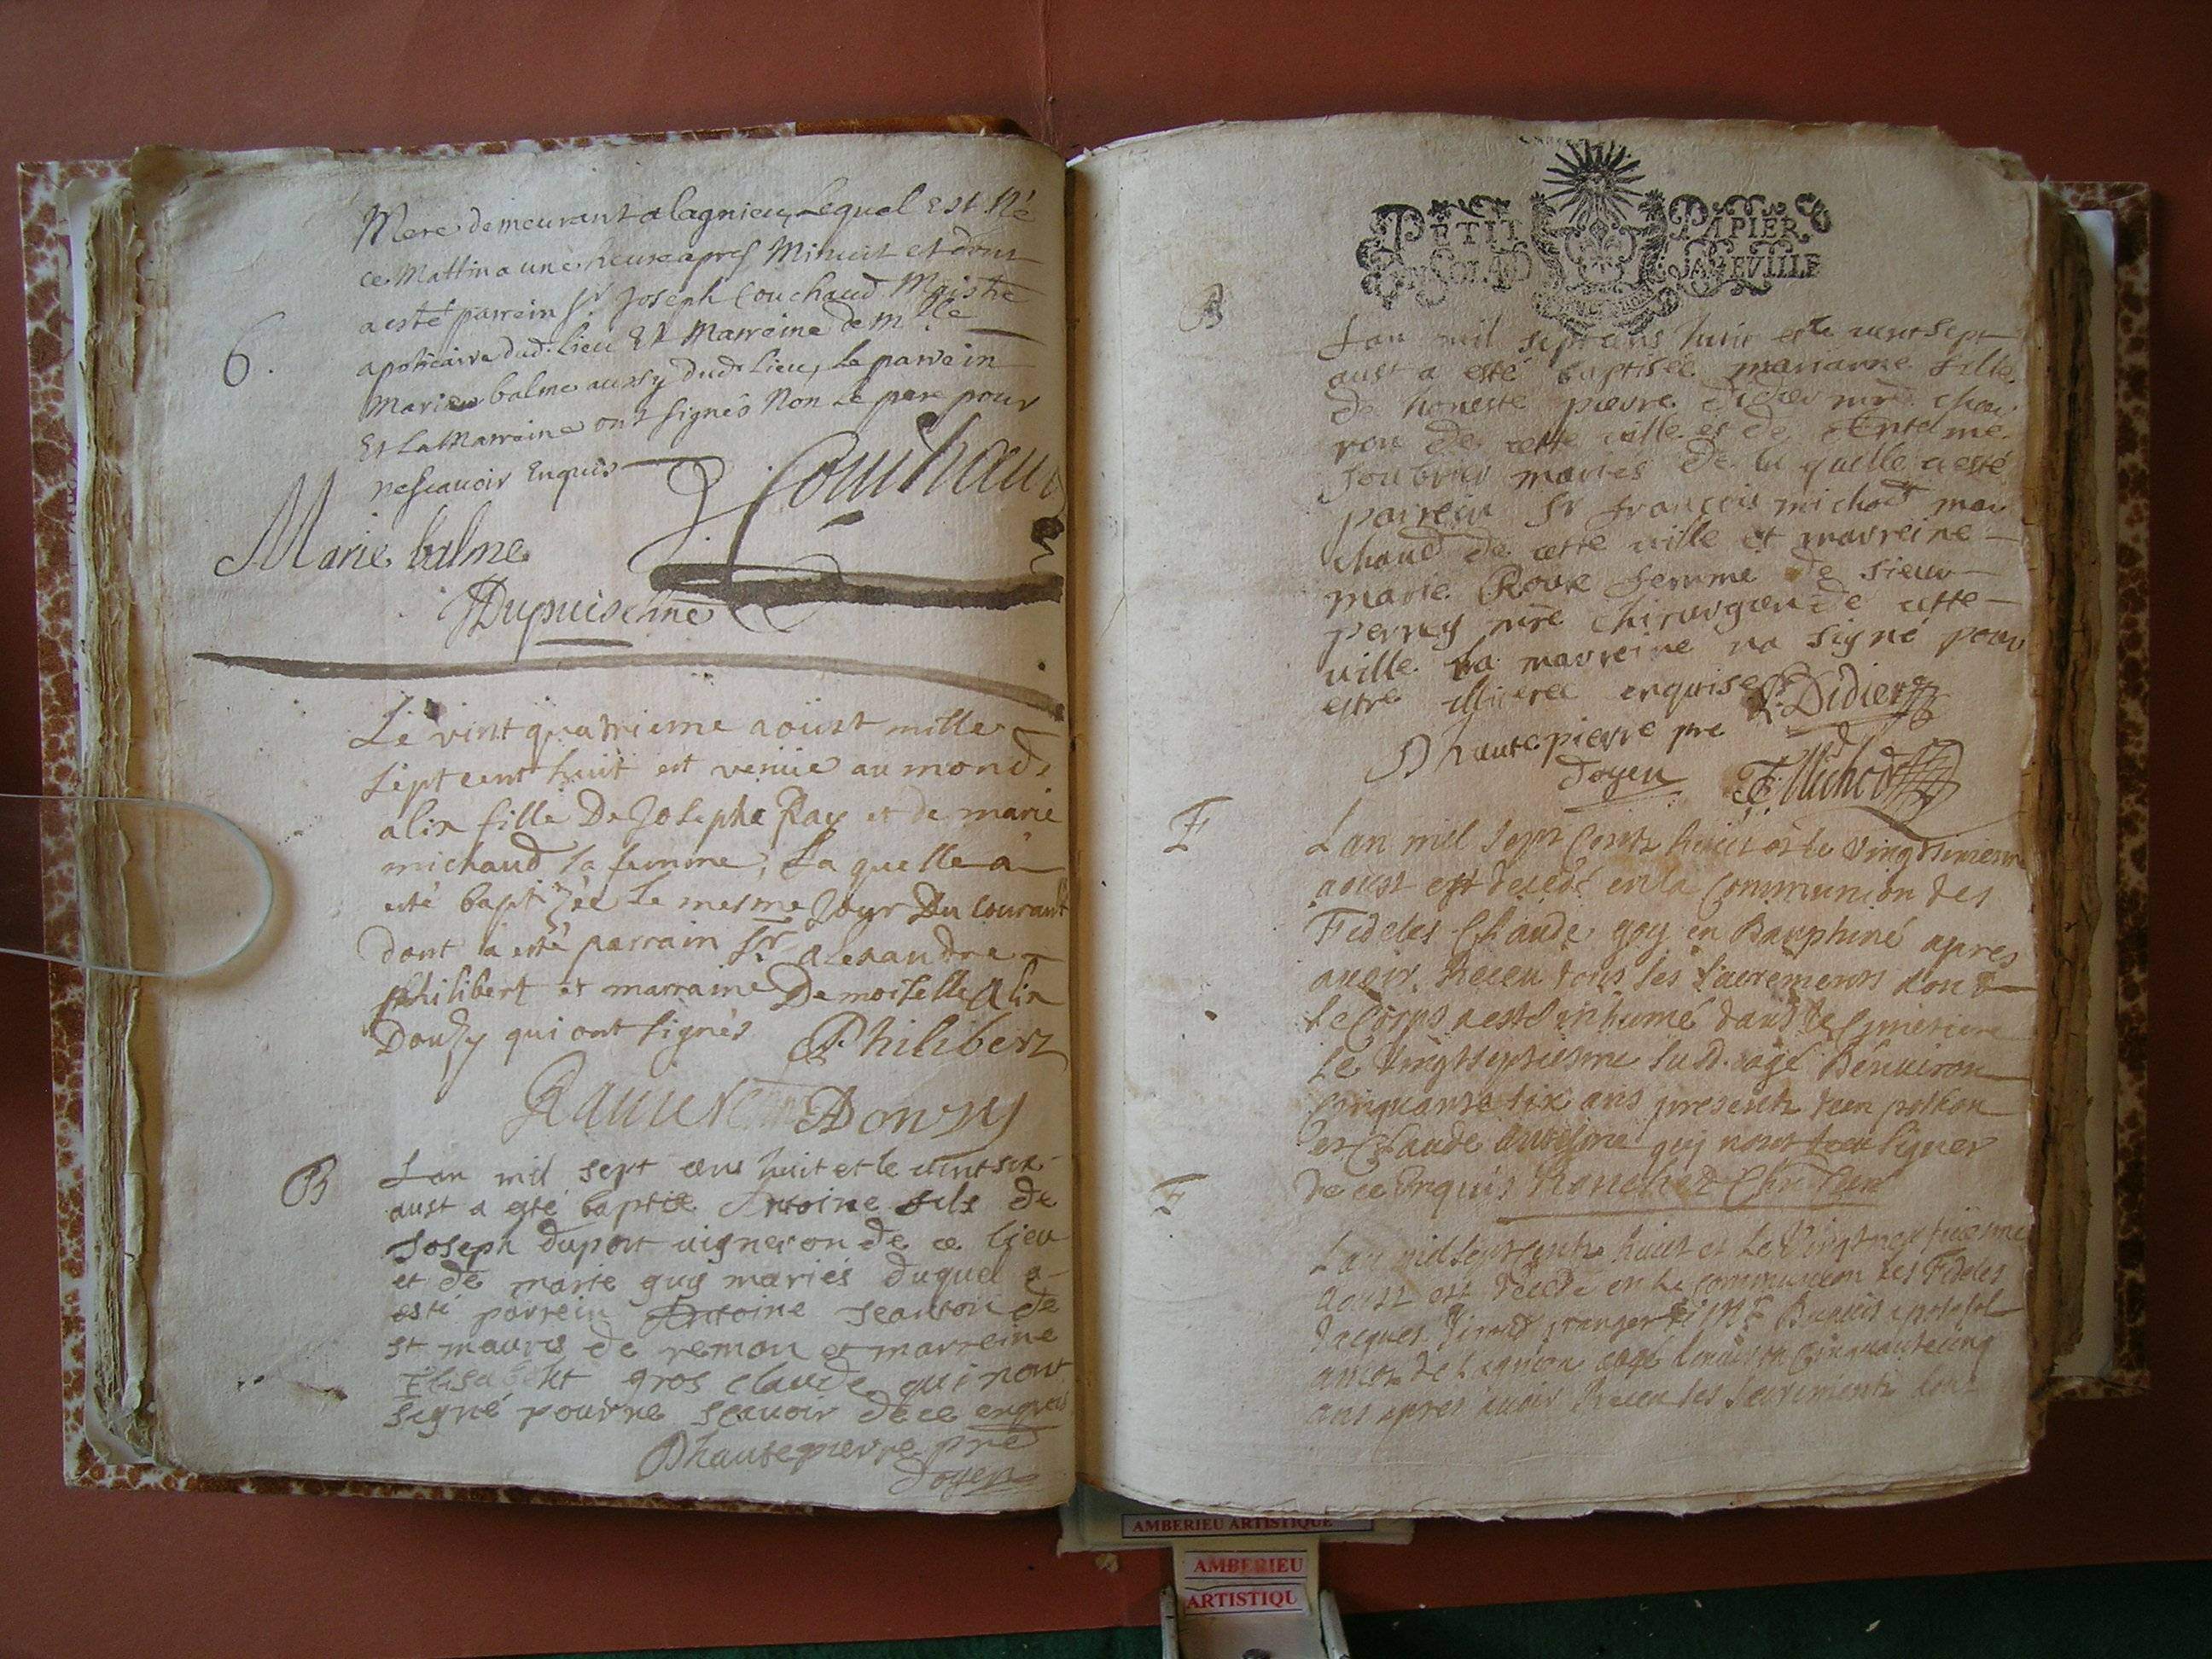 Mere demeurant a lagnieu, Lequel Est Né
ce Mattin a une heure apres Minuit et dont
a esté parrein Sr. Joseph Couchaud Maistre
apoticaire dud. Lieu Et Marreine demlle
6.
Marie balme aussy dud. Lieu, Le parrein
Et La Marreine ont signés Non Le pere pour
ne scavoir Enquis
J. Couchaud
Marie balme
Dupuis chne
Le vint quatrieme aoust mille
sept cent huit est venüe au monde
alix fille De Joseph Ray et de marie
michaud sa femme, La quelle a
esté baptizée Le mesme Jour Du Courant
dont a esté parrain Sr. alexandre
philibert et marraine Demoiselle Alix
Douzy qui ont signés Philibert
ADouzy
B
Lan mil sept cens huit et le vint six
aust a esté baptisé Antoine fils de
Joseph duport vigneron de ce lieu
et de marie guy mariés duquel a
esté parrein Antoine Jeanton de
st mauris de remon et marreine
Elisabeht gros claude qui nont
signé pour ne scavoir de ce enquis
Dhautepierre pre
doyen
PETIT PAPIER
B
Lan mil sept cens huit et le vint sept
aust a esté baptisée marianne fille
de honeste pierre didier mre. char
ron de cette ville et de
mariés de la quelle a esté
parrein Sr françois michod mar
chand de cette ville et marreine
marie Roux femme de sieur
perruy mre chirurgien de cette
ville la marreine na signé pour
estre illiterée enquise P. Didier
Dhautepierre pre
doyen F. Michod
F
Lan mil sept Centz huict et le vingtsixiesme
aoust est decedé en la Communion des
Fideles Claude goy en Dauphiné apres
avoir Receu tous les sacrements dont
le Corps a esté inhumé dans le Cimetiere
le vingtseptiesme sud. aagé denuiron
Cinquante six ans presentz
et Claude quy nont sceu signer
de ce Enquis
F
Lan mil sept centz huict et le Vingtneufuiesme
aoust est decedé en la communion des Fideles
Jacques granger de Mr.
de Lagnieu aagé denuiron Cinquantecinq
ans apres avoir Receu les sacrements dont
AMBERIEU ARTISTIQUE
AMBERIEU
ARTISTIQU